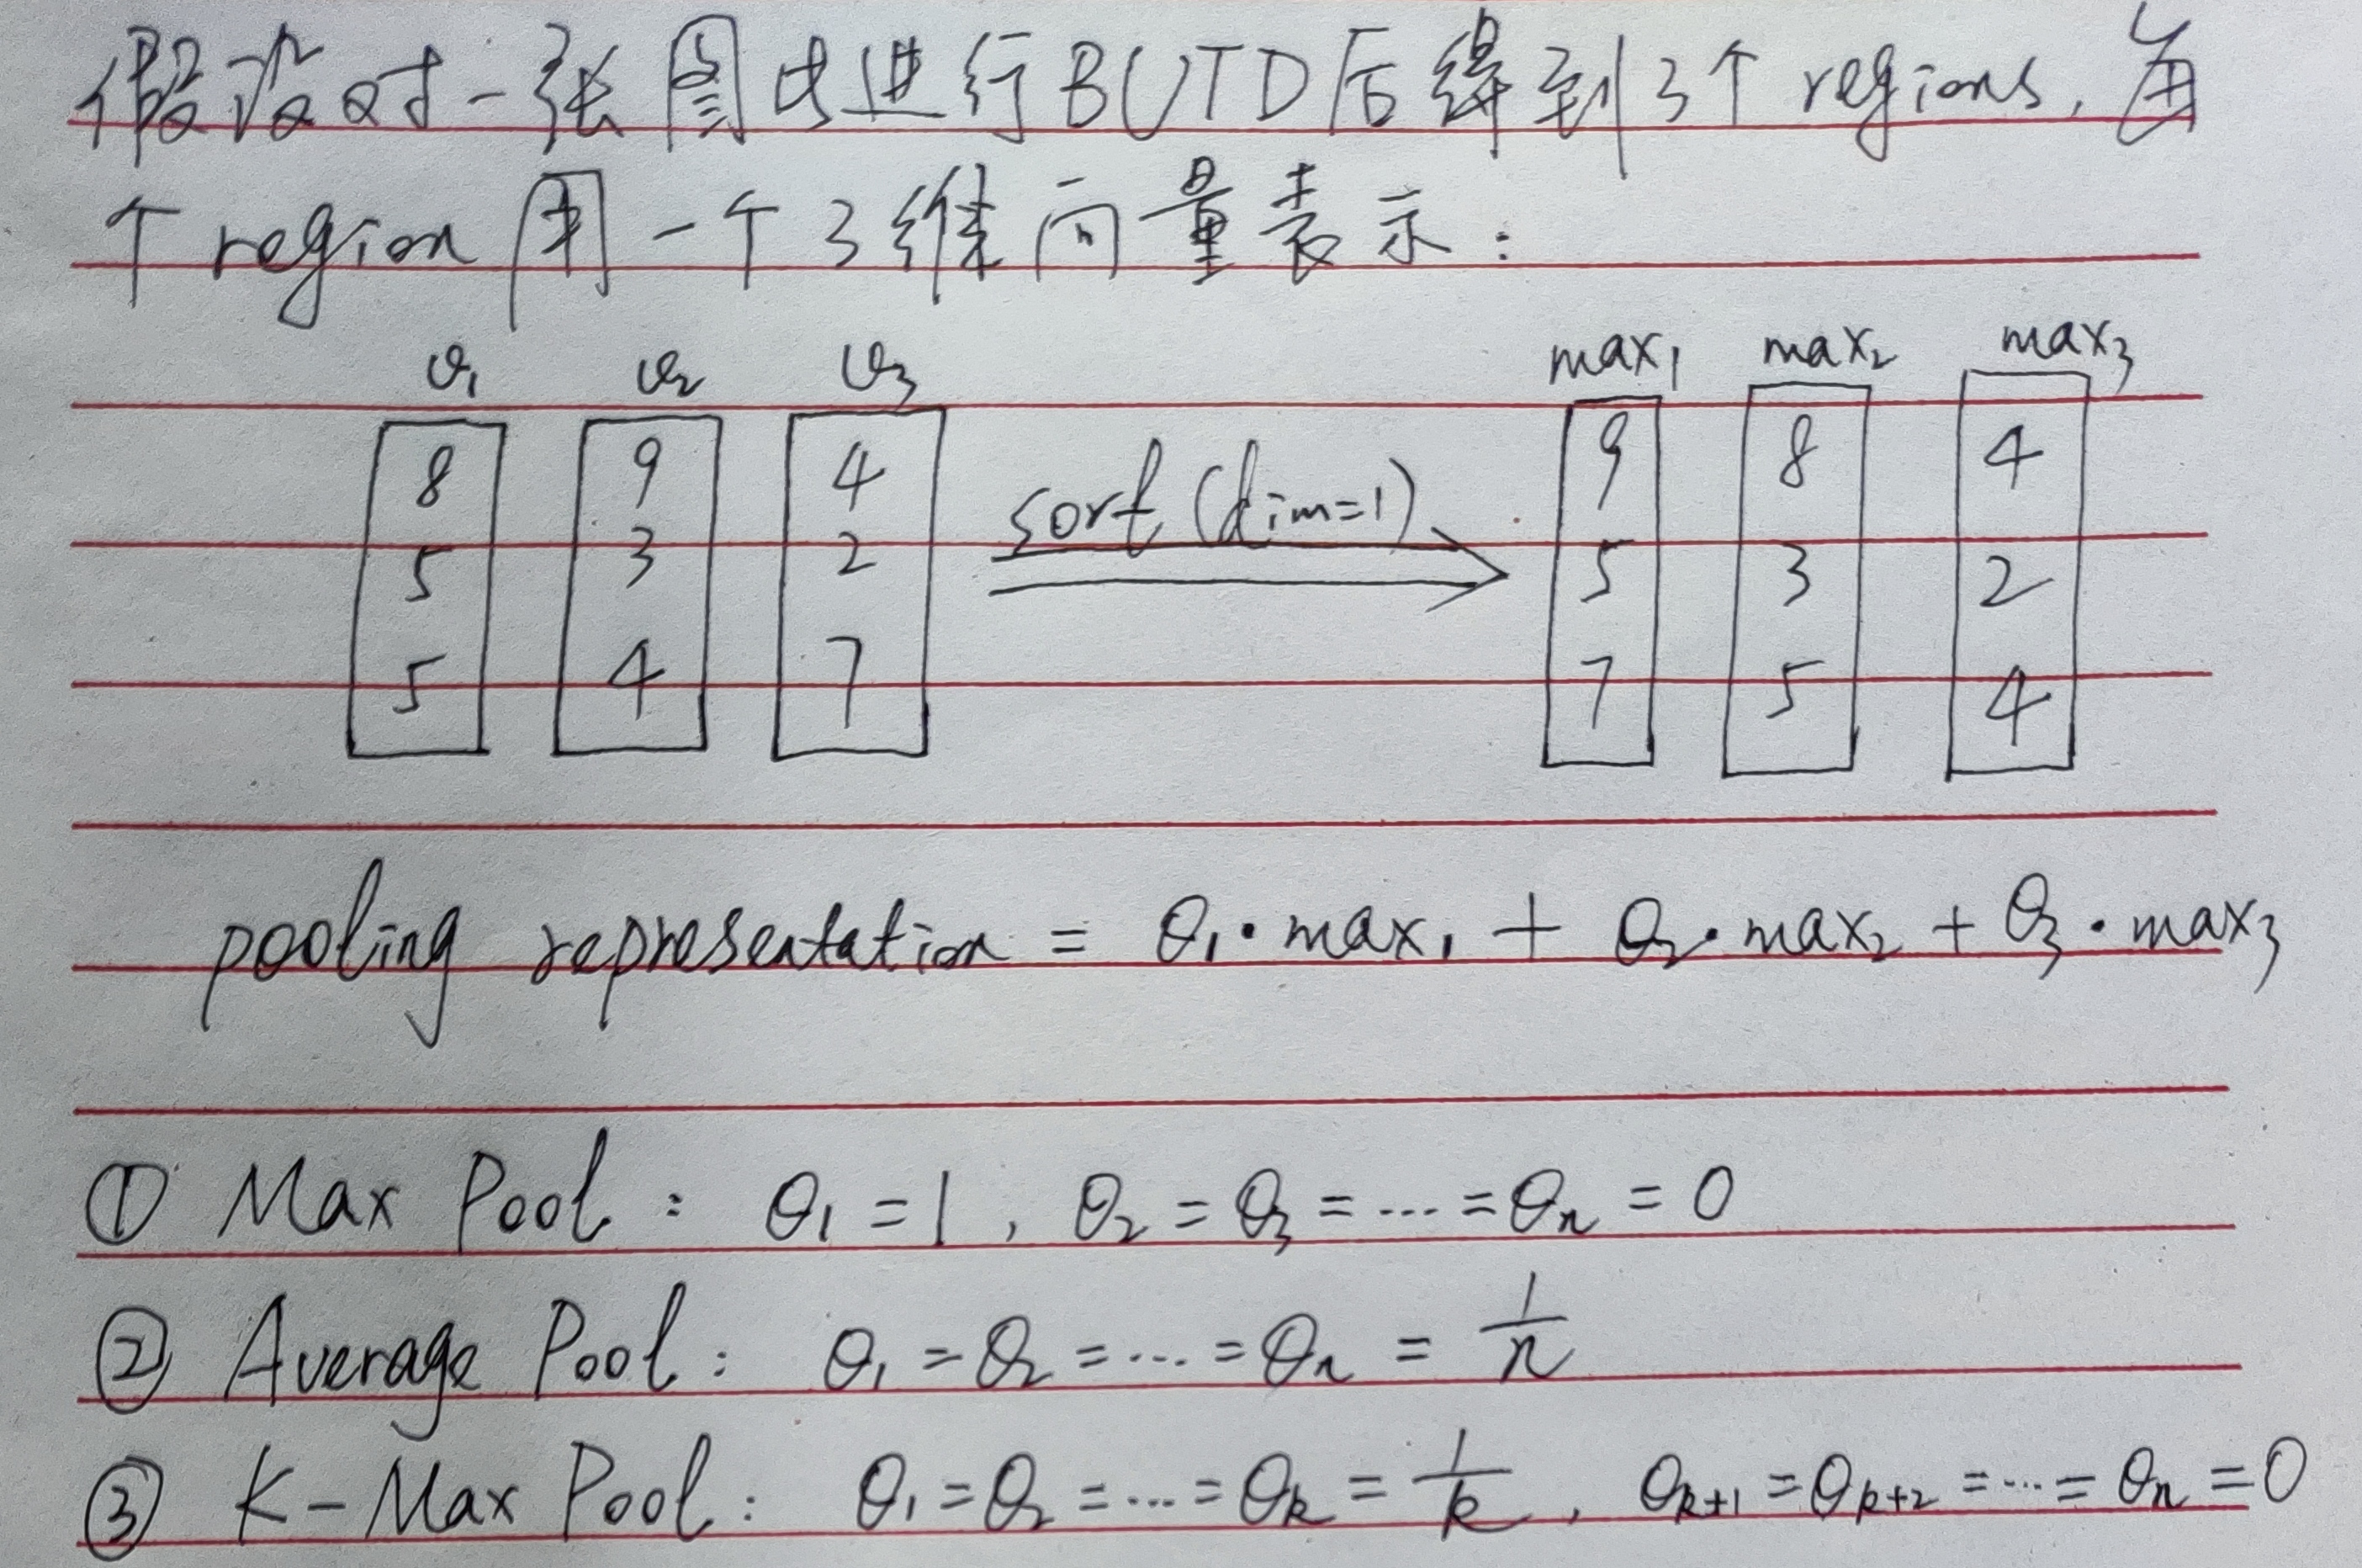 假设对一张图片进行BUTD后得到3个regions,每
个region用一个3维向量表示:
v₁ v₂ v₃ max₁ max₂ max₃
8 9 4 9 8 4
sort(dim=1)
5 3 2 5 3 2
5 4 7 7 5 4
pooling representation = θ₁·max₁ + θ₂·max₂ + θ₃·max₃
① Max Pool: θ₁=1, θ₂=θ₃=...=θₙ=0
② Average Pool: θ₁=θ₂=...=θₙ=1/n
③ K-Max Pool: θ₁=θ₂=...=θₖ=1/k, θₖ₊₁=θₖ₊₂=...=θₙ=0